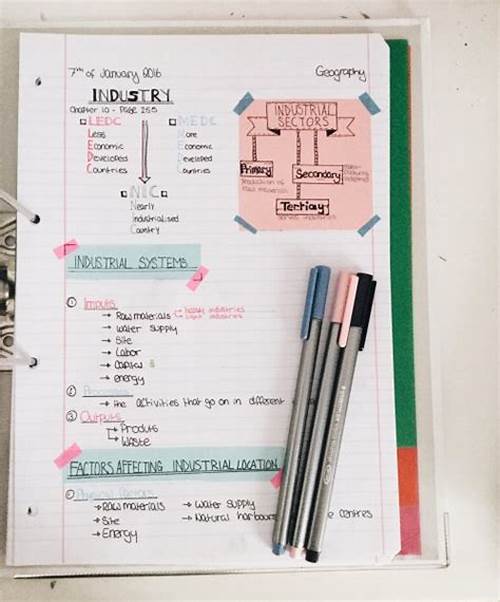 7th of January 2016
Geography
INDUSTRY
Chapter 10 - Page 255
LEDC
Less
Economic
Developed
Countries
MEDC
More
Economic
Developed
Countries
NIC
Nearly
Industrialised
Country
INDUSTRIAL
SECTORS
Primary
production of
raw materials
Secondary
Tertiary
INDUSTRIAL SYSTEMS
① Inputs
→ Raw materials → heavy industries
→ light industries
→ Water supply
→ Site
→ Labor
→ Capital $
→ energy
② Processes
→ the activities that go on in different
③ Outputs
→ Produts
→ Waste
FACTORS AFFECTING INDUSTRIAL LOCATION
① Physical factors
→ Raw materials → Water supply
→ Site → Natural harbours centres
→ Energy